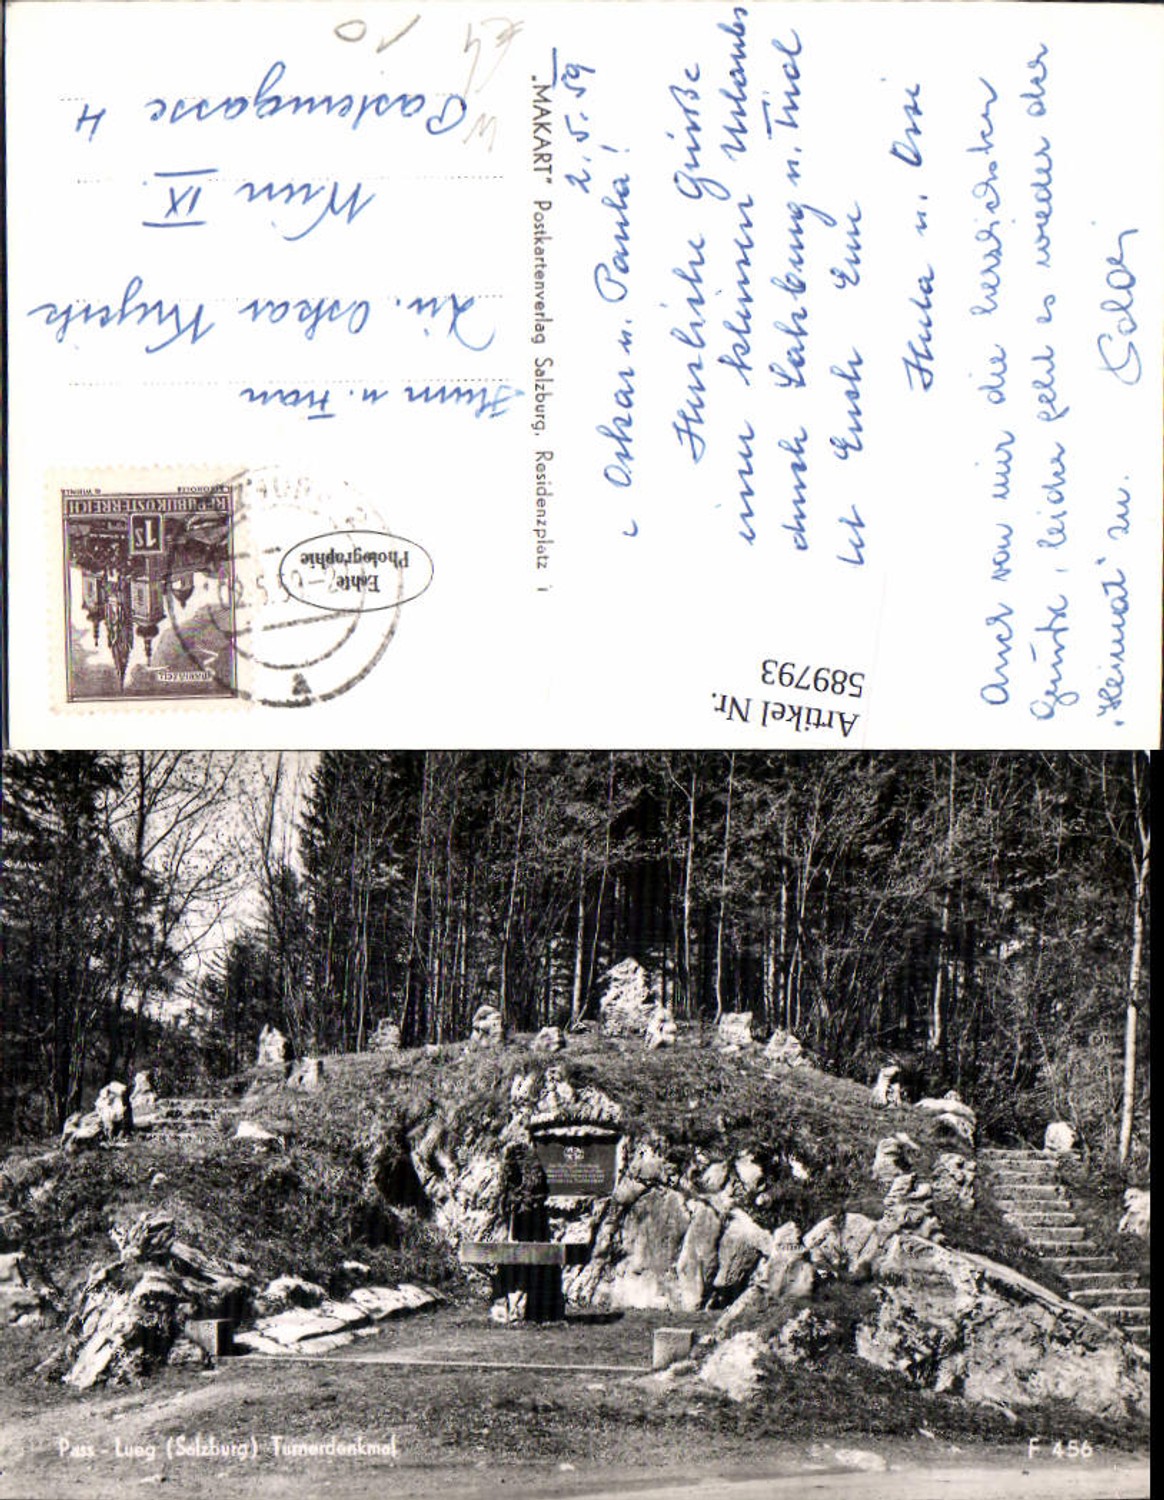 2.5.59
Oskar u. Paula!
Herzliche Grüße
einer kleinen Urlaubs
durch Salzburg u. Tirol
Euch Eure
Herta u. Ossi
Auch von mir die herzlichsten
Grüße, leider geht es wieder der
"Heimat" zu.
"MAKART" Postkartenverlag Salzburg, Residenzplatz 1
Herrn u. Frau
Oskar
Wien IX.
Pasteurgasse 4
REPUBLIK ÖSTERREICH
1S
MARIAZELL
Echte
Photographie
Artikel Nr.
589793
Pass - Lueg (Salzburg) Turnerdenkmal
F 456